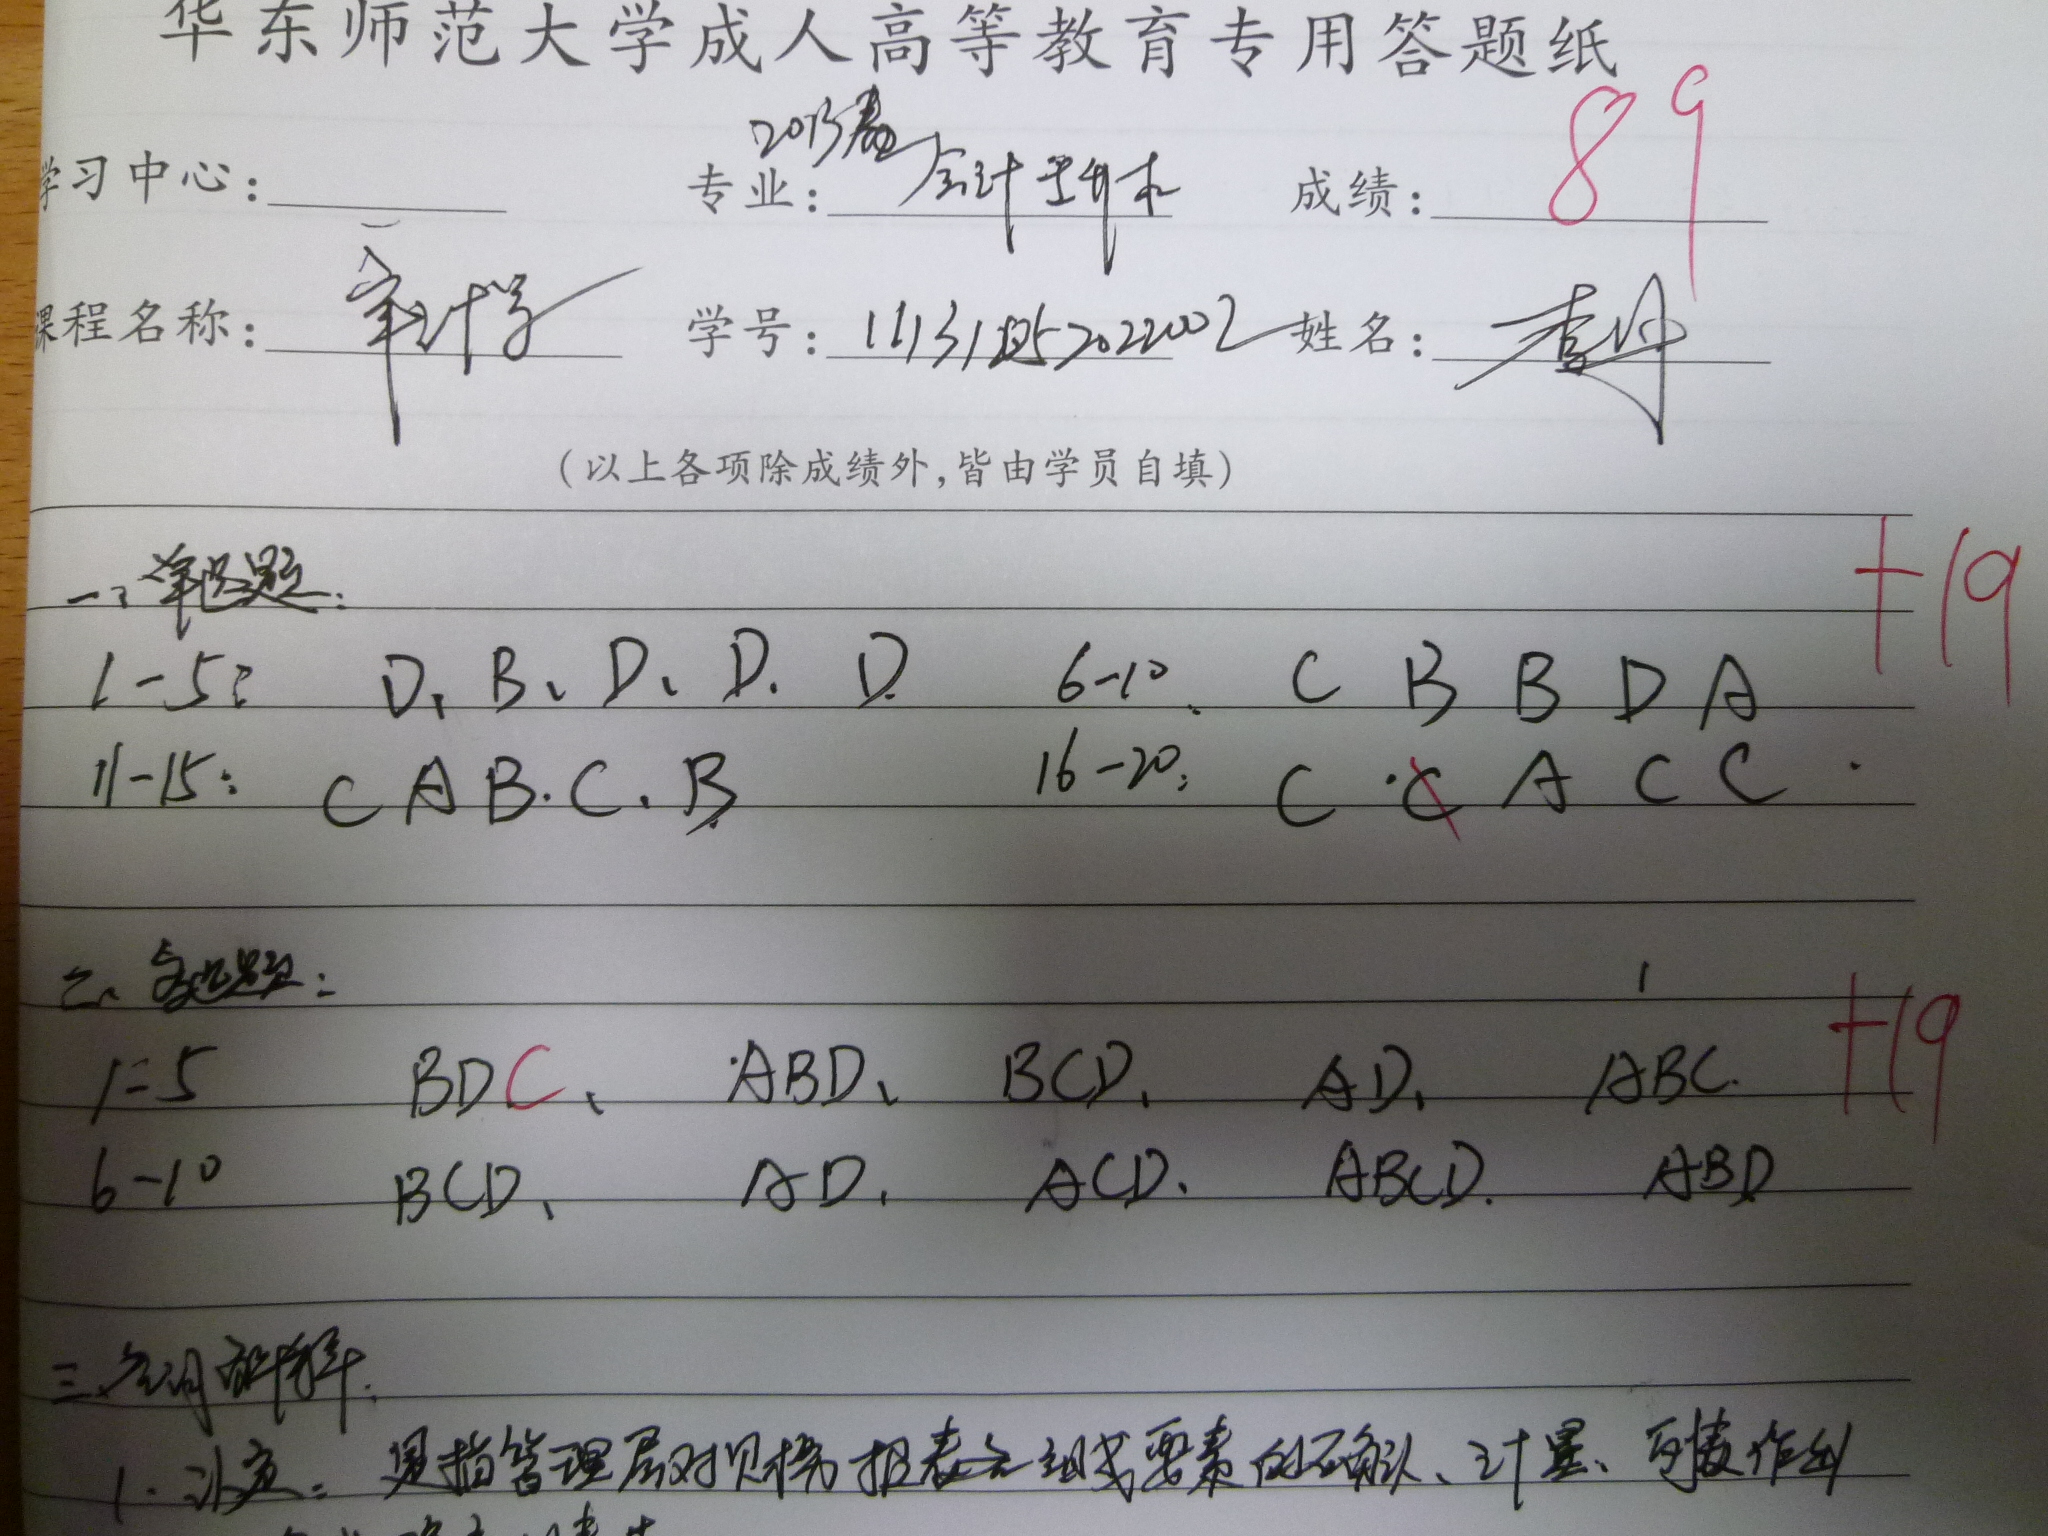 华东师范大学成人高等教育专用答题纸
学习中心: 专业: 2013春 会计专升本 成绩: 89
课程名称: 审计学 学号: 姓名:
(以上各项除成绩外,皆由学员自填)
一、单选题: +19
1-5: D、B、D、D. D. 6-10、 C B B D A
11-15: C A B. C. B 16-20: C C A C C
二、多选题:
1-5 BDC、 ABD、 BCD、 AD、 ABC. +19
6-10 BCD、 AD、 ACD、 ABCD. ABD
三、名词解释:
1. 认定: 是指管理层对财务报表各组成要素的确认、计量、列报作出